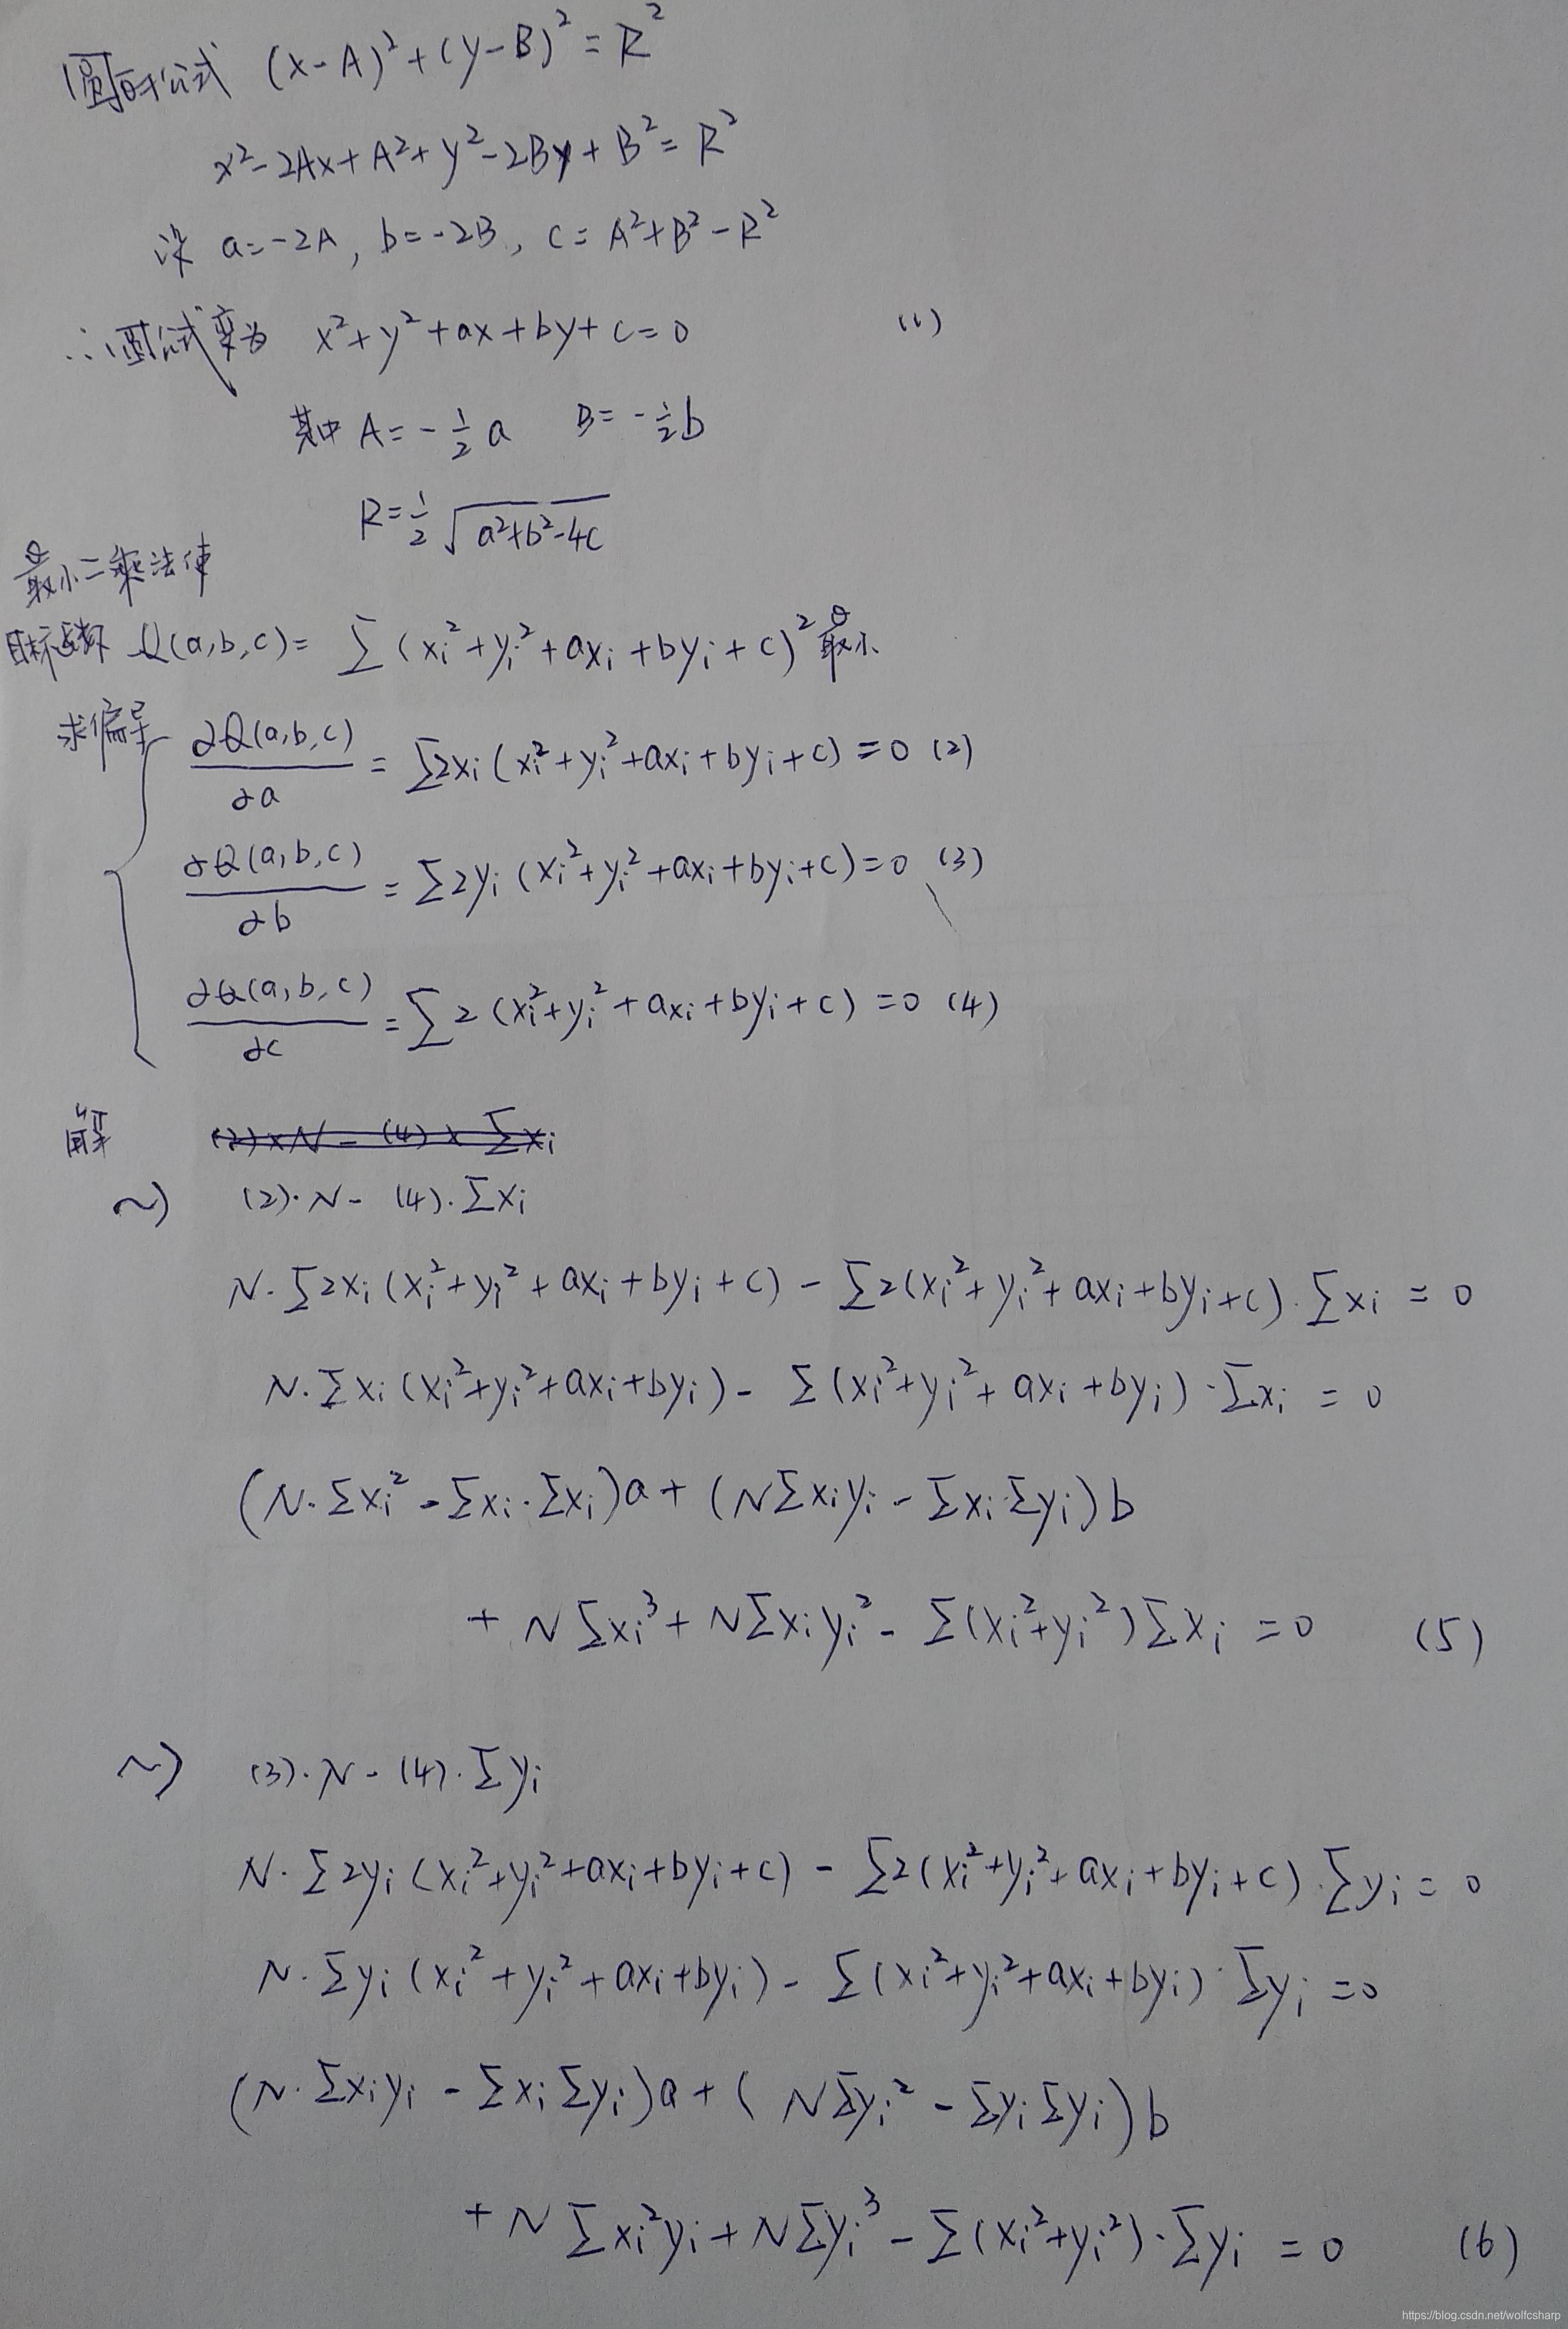 圆的公式 (x-A)²+(y-B)²=R²
x²-2Ax+A²+y²-2By+B²=R²
设 a=-2A, b=-2B, c=A²+B²-R²
∴圆公式变为 x²+y²+ax+by+c=0 (1)
其中 A=-½a B=-½b
R=½√(a²+b²-4c)
最小二乘法使
目标函数 Q(a,b,c)= Σ(xi²+yi²+axi+byi+c)² 最小
求偏导 ∂Q(a,b,c)/∂a = Σ2xi(xi²+yi²+axi+byi+c)=0 (2)
∂Q(a,b,c)/∂b = Σ2yi(xi²+yi²+axi+byi+c)=0 (3)
∂Q(a,b,c)/∂c = Σ2(xi²+yi²+axi+byi+c)=0 (4)
解 (2)×N-(4)×Σxi
~) (2)·N-(4)·Σxi
N·Σ2xi(xi²+yi²+axi+byi+c)-Σ2(xi²+yi²+axi+byi+c)·Σxi=0
N·Σxi(xi²+yi²+axi+byi)-Σ(xi²+yi²+axi+byi)·Σxi=0
(N·Σxi²-Σxi·Σxi)a+(NΣxiyi-Σxi·Σyi)b
+NΣxi³+NΣxiyi²-Σ(xi²+yi²)Σxi=0 (5)
~) (3)·N-(4)·Σyi
N·Σ2yi(xi²+yi²+axi+byi+c)-Σ2(xi²+yi²+axi+byi+c)·Σyi=0
N·Σyi(xi²+yi²+axi+byi)-Σ(xi²+yi²+axi+byi)·Σyi=0
(N·Σxiyi-ΣxiΣyi)a+(NΣyi²-ΣyiΣyi)b
+NΣxi²yi+NΣyi³-Σ(xi²+yi²)·Σyi=0 (6)
https://blog.csdn.net/wolfcsharp